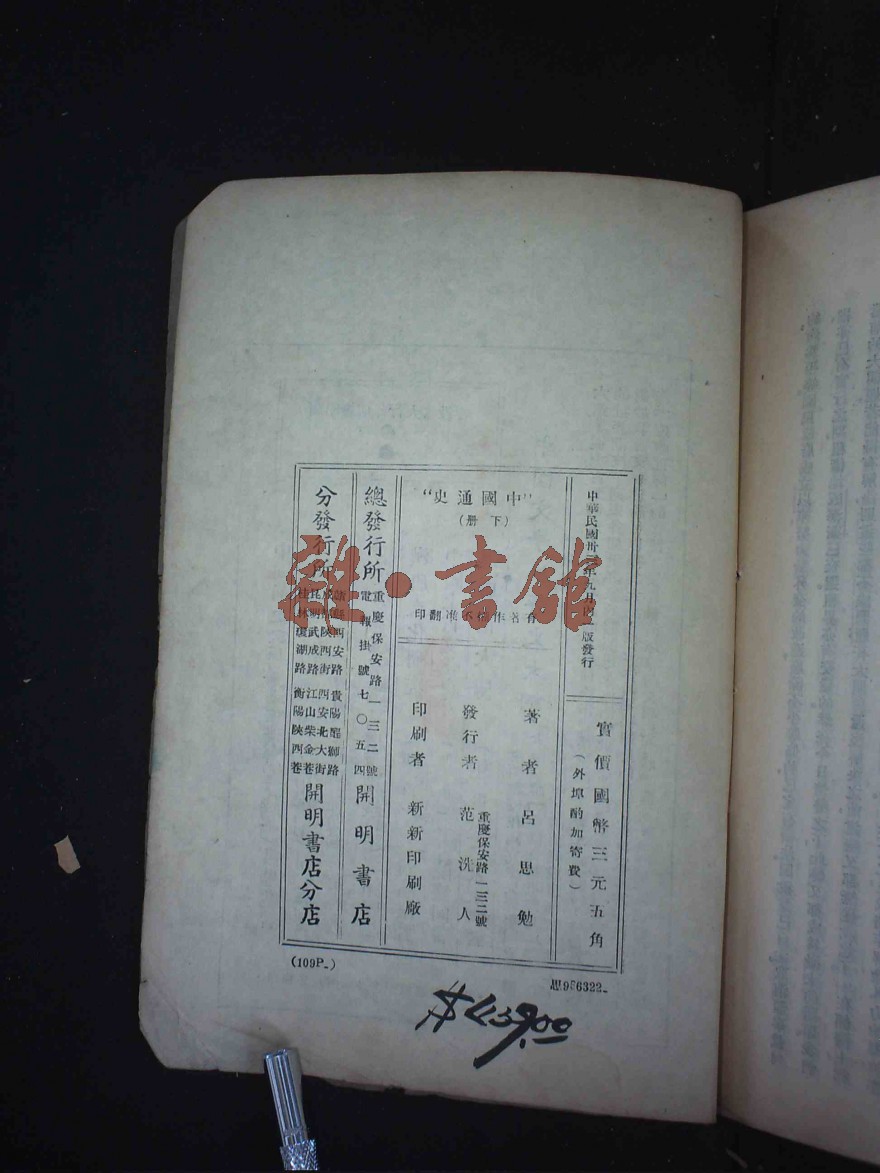 中華民國卅
版發行
實價國幣三元五角
(外埠酌加寄費)
"中國通史"
(下册)
有著作權不准翻印
著者 呂思勉
發行者 范洗人
重慶保安路一三二號
印刷者 新新印刷廠
總發行所
重慶保安路一三二號
電報掛號七〇五四
開明書店
分發行所
貴陽醒獅路
西安北大街
衡陽陝西巷
開明書店分店
(109P.)
$ 439.00
雜·書館